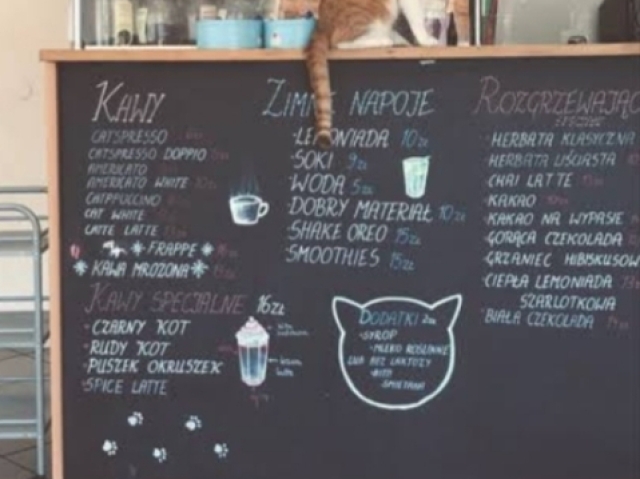 KAWY
CATSPRESSO
CATSPRESSO DOPPIO
AMERICATO
AMERICATO WHITE
CATPPUCCINO
CAT WHITE
LATTE LATTE
FRAPPE
KAWA MROŻONA
KAWY SPECJALNE 16ZŁ
CZARNY KOT
RUDY KOT
PUSZEK OKRUSZEK
SPICE LATTE
NAPOJE
10ZŁ
SOKI 9ZŁ
WODA 5ZŁ
DOBRY MATERIAŁ 10ZŁ
SHAKE OREO 15ZŁ
SMOOTHIES 15ZŁ
DODATKI 2ZŁ
SYROP
MLEKO ROŚLINNE
LUB BEZ LAKTOZY
BITA
ŚMIETANA
ROZGRZEWAJĄC
HERBATA KLASYCZNA
HERBATA LIŚCIASTA
CHAI LATTE
KAKAO
KAKAO NA WYPASIE
GORĄCA CZEKOLADA
GRZANIEC HIBISKUSOW
CIEPŁA LEMONIADA
SZARLOTKOWA
BIAŁA CZEKOLADA